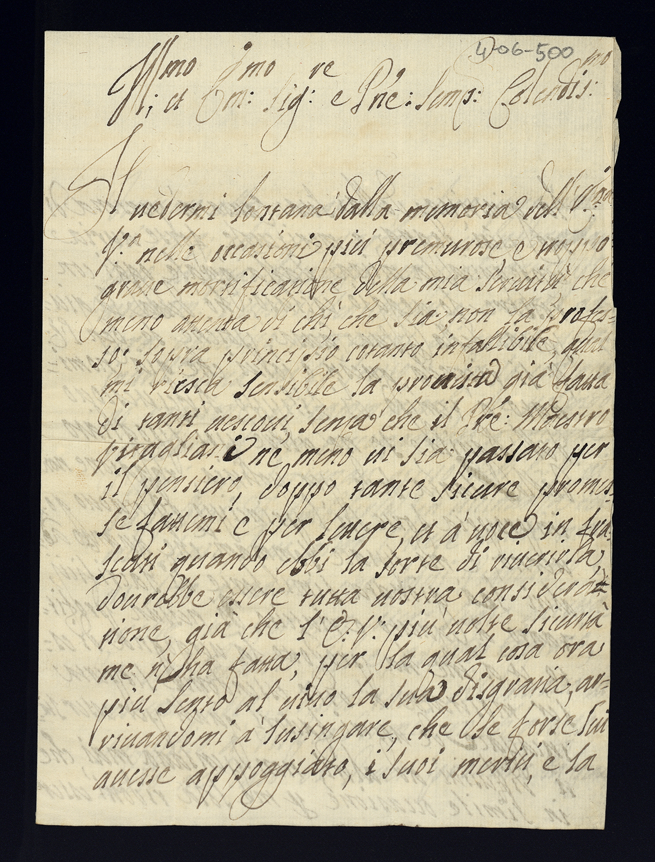 4)-06-500
et Sig: e Pne: Semp: Colendis:mo
Il vedermi lontana dalla memoria dell'
V:a nelle occasioni più premurose, e troppo
grave mortificazione della mia Servitù che
meno attenta di chi che sia non la profes=
so: sopra principio cotanto infallibile, qual
mi riesca sensibile la provista già fatta
di tanti vescovi, senza che il Pre: Maestro
ne meno vi sia passato per
il pensiero, doppo tante sicure promes
se fattemi e per lettere, et à voce in fra
scati quando ebbi la sorte di riverirla
dovrebbe essere tutta vostra considera=
tione, già che l'E: V: più volte sicurtà
me n'ha fatta, per la qual cosa ora
più sento al vivo la sua disgrazia, ar=
rivandomi à lusingare, che se forse lui
avesse appoggiato, i suoi meriti, e la